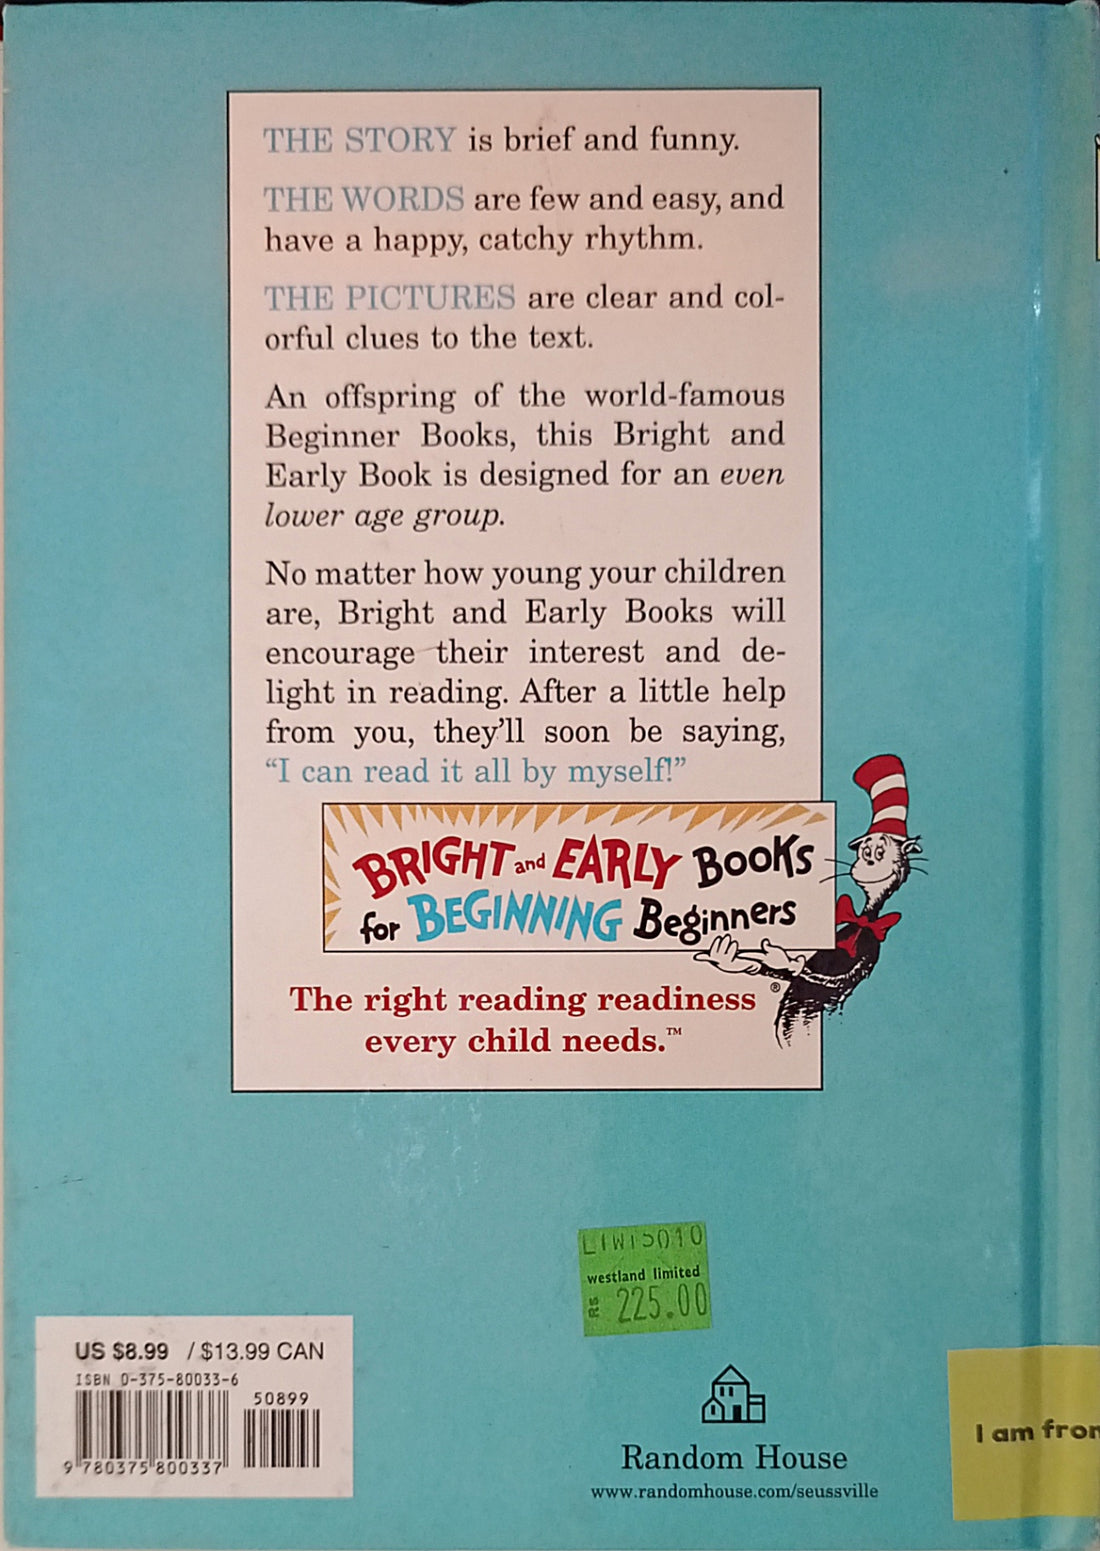 THE STORY is brief and funny.
THE WORDS are few and easy, and
have a happy, catchy rhythm.
THE PICTURES are clear and col-
orful clues to the text.
An offspring of the world-famous
Beginner Books, this Bright and
Early Book is designed for an even
lower age group.
No matter how young your children
are, Bright and Early Books will
encourage their interest and de-
light in reading. After a little help
from you, they'll soon be saying,
"I can read it all by myself!"
BRIGHT and EARLY BOOKS
for BEGINNING Beginners
®
The right reading readiness
every child needs.™
westland limited
RS 225.00
US $8.99 / $13.99 CAN
ISBN 0-375-80033-6
50899
9 780375 800337
Random House
www.randomhouse.com/seussville
I am from